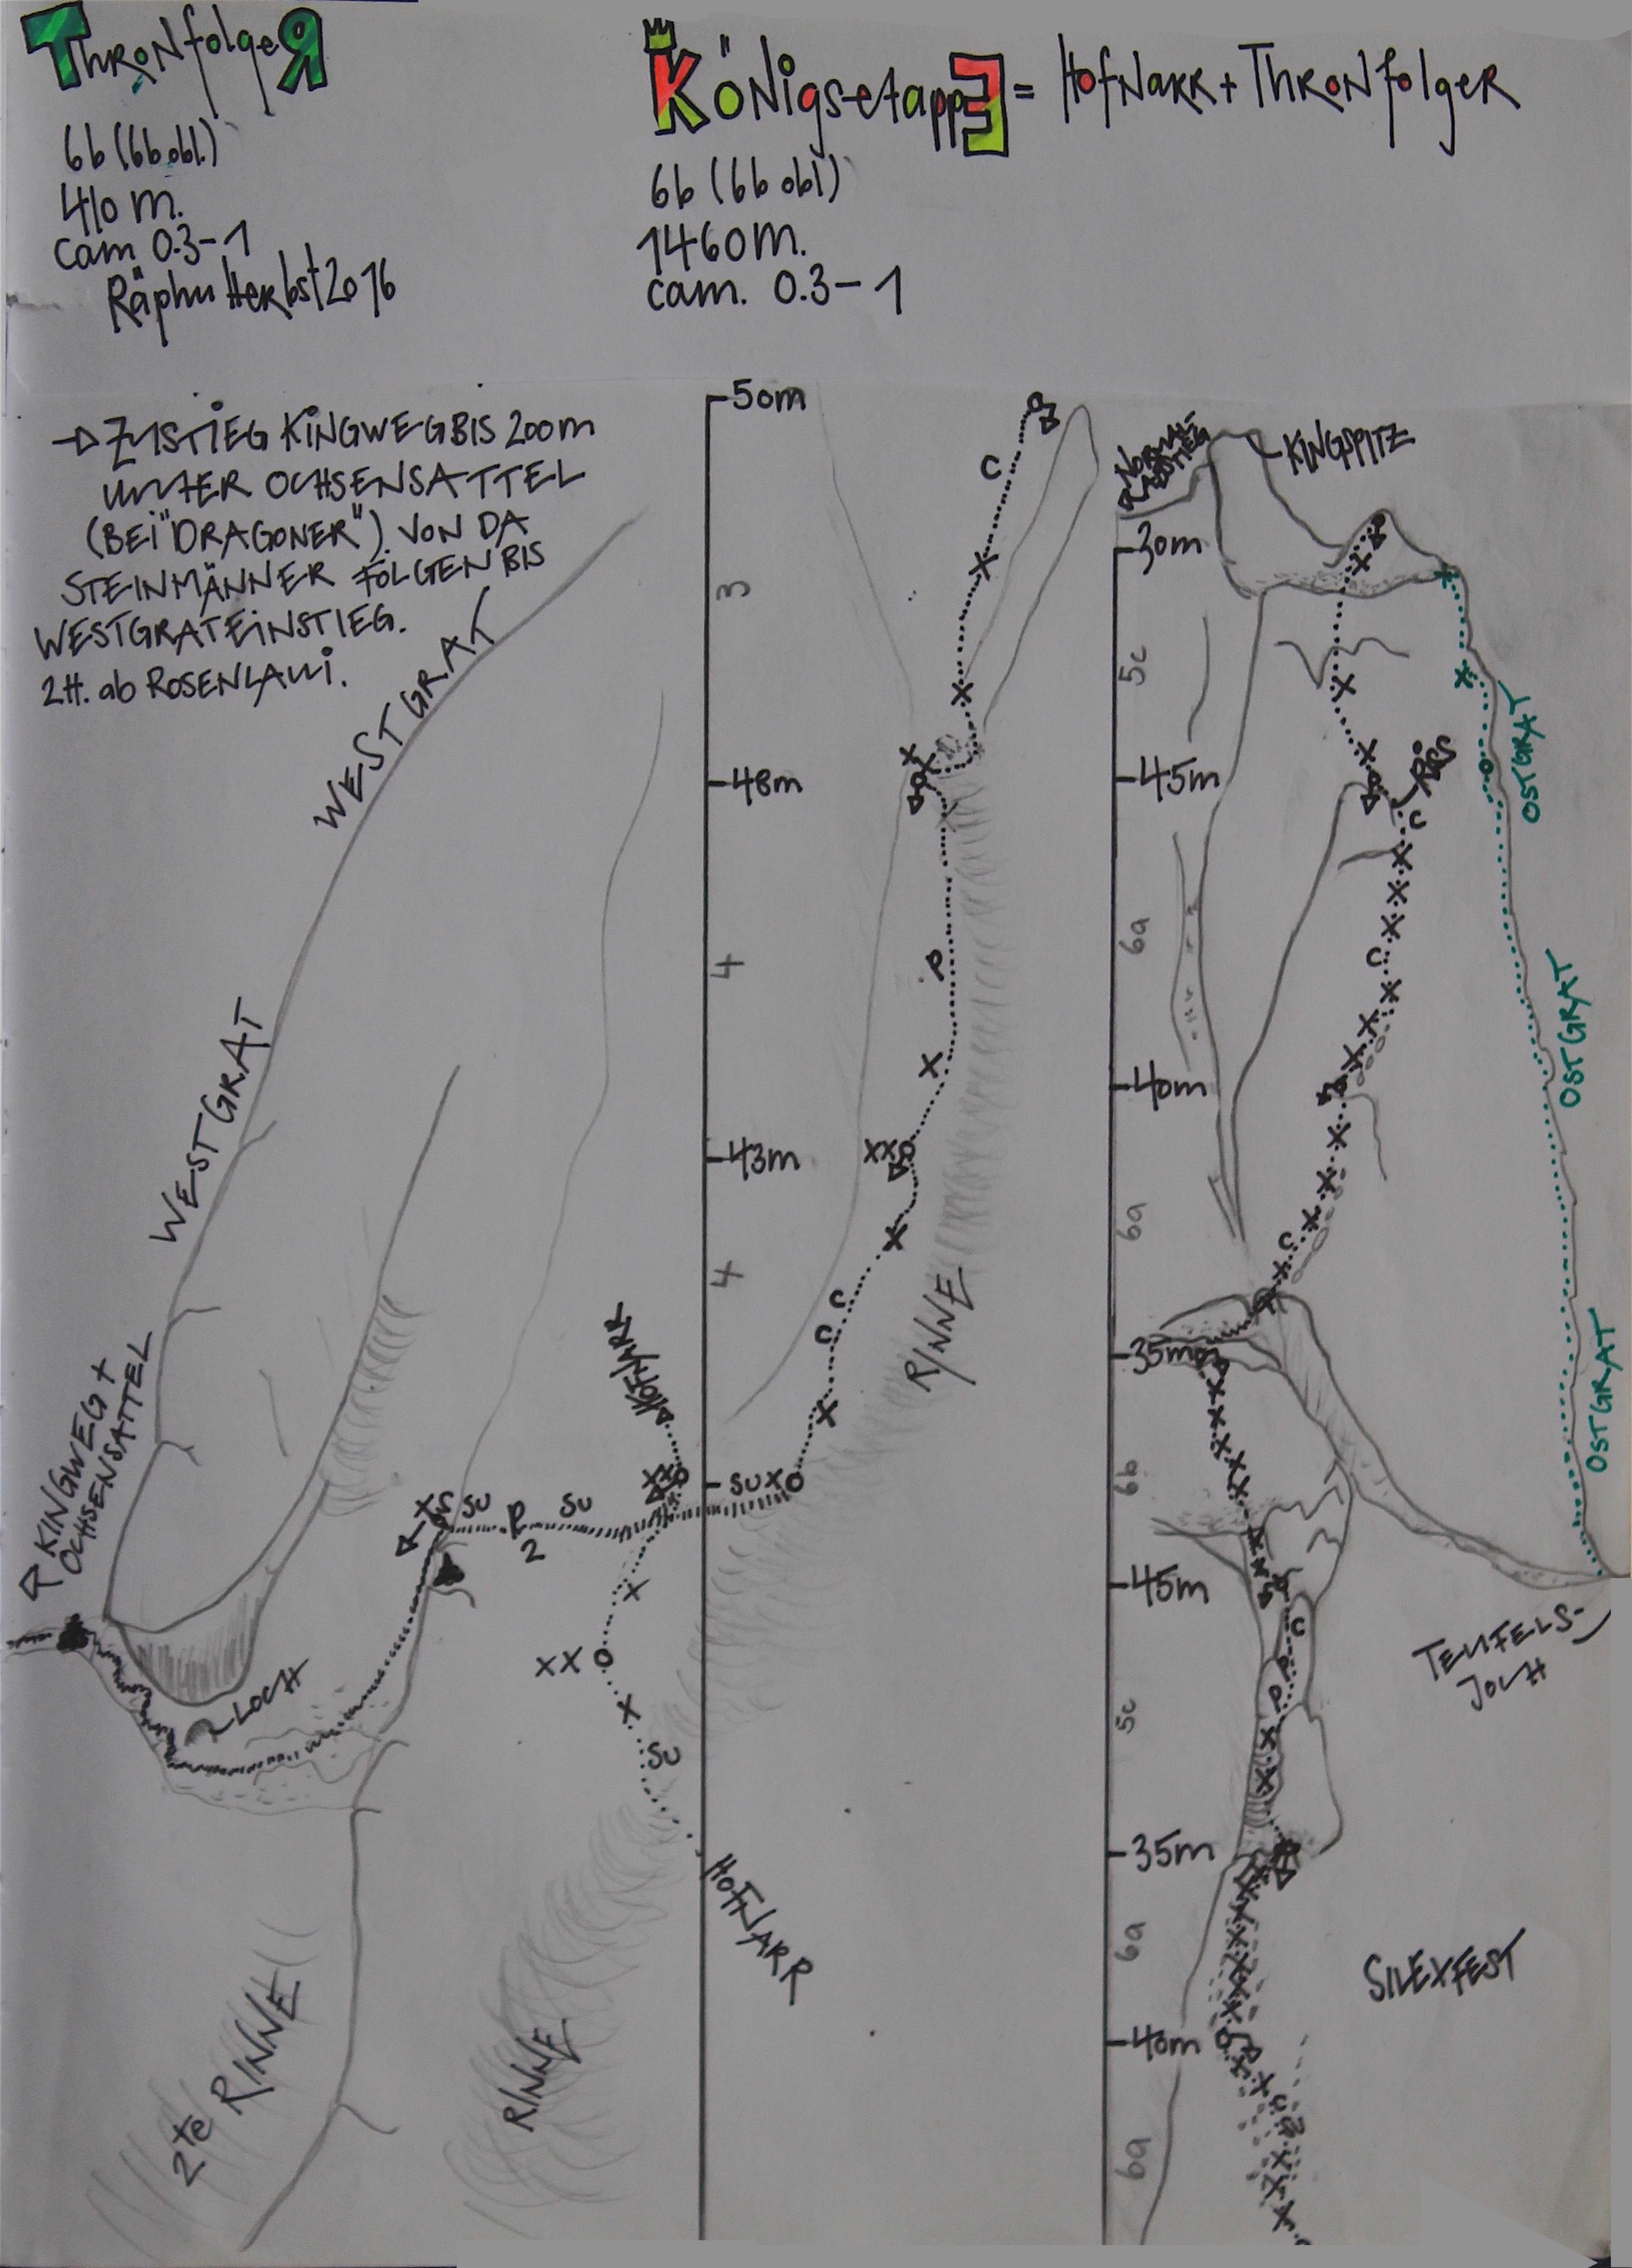 ThroNfolgeR
6b (6b obl.)
410 m.
Cam 0.3-1
Räphu Herbst 2016
KöNigsetappE = HofNaRR + ThRoNfolgeR
6b (6b obl)
1460m.
cam. 0.3-1
→ ZUSTIEG KINGWEG BIS 200m
UNTER OCHSENSATTEL
(BEI "DRAGONER"). VON DA
STEINMÄNNER FOLGEN BIS
WESTGRATEINSTIEG.
2H. ab ROSENLAUI.
WESTGRAT
WESTGRAT
KINGWEG +
OCHSENSATTEL
LOCH
2te RINNE
RINNE
XS SU P SU
2
HOFNARR
XX
X
XX
X
SU
HOFNARR
50m
C
X
3
X
X
X
48m
4
P
X
43m
XX
X
4
C
C
X
SU X
RINNE
NORMAL
ABSTIEG
KINGSPITZ
30m
X
5c
X
X
45m
RiSS
C
X
X
X
6a
C
X
X
X
40m
X
X
X
6a
C
X
35m
X
X
X
X
X
6b
X
45m
C
P
P
5c
X
X
35m
6a
40m
X
X
C
6a
X
X
X
OSTGRAT
OSTGRAT
OSTGRAT
TEUFELS-
JOCH
SILEXFEST